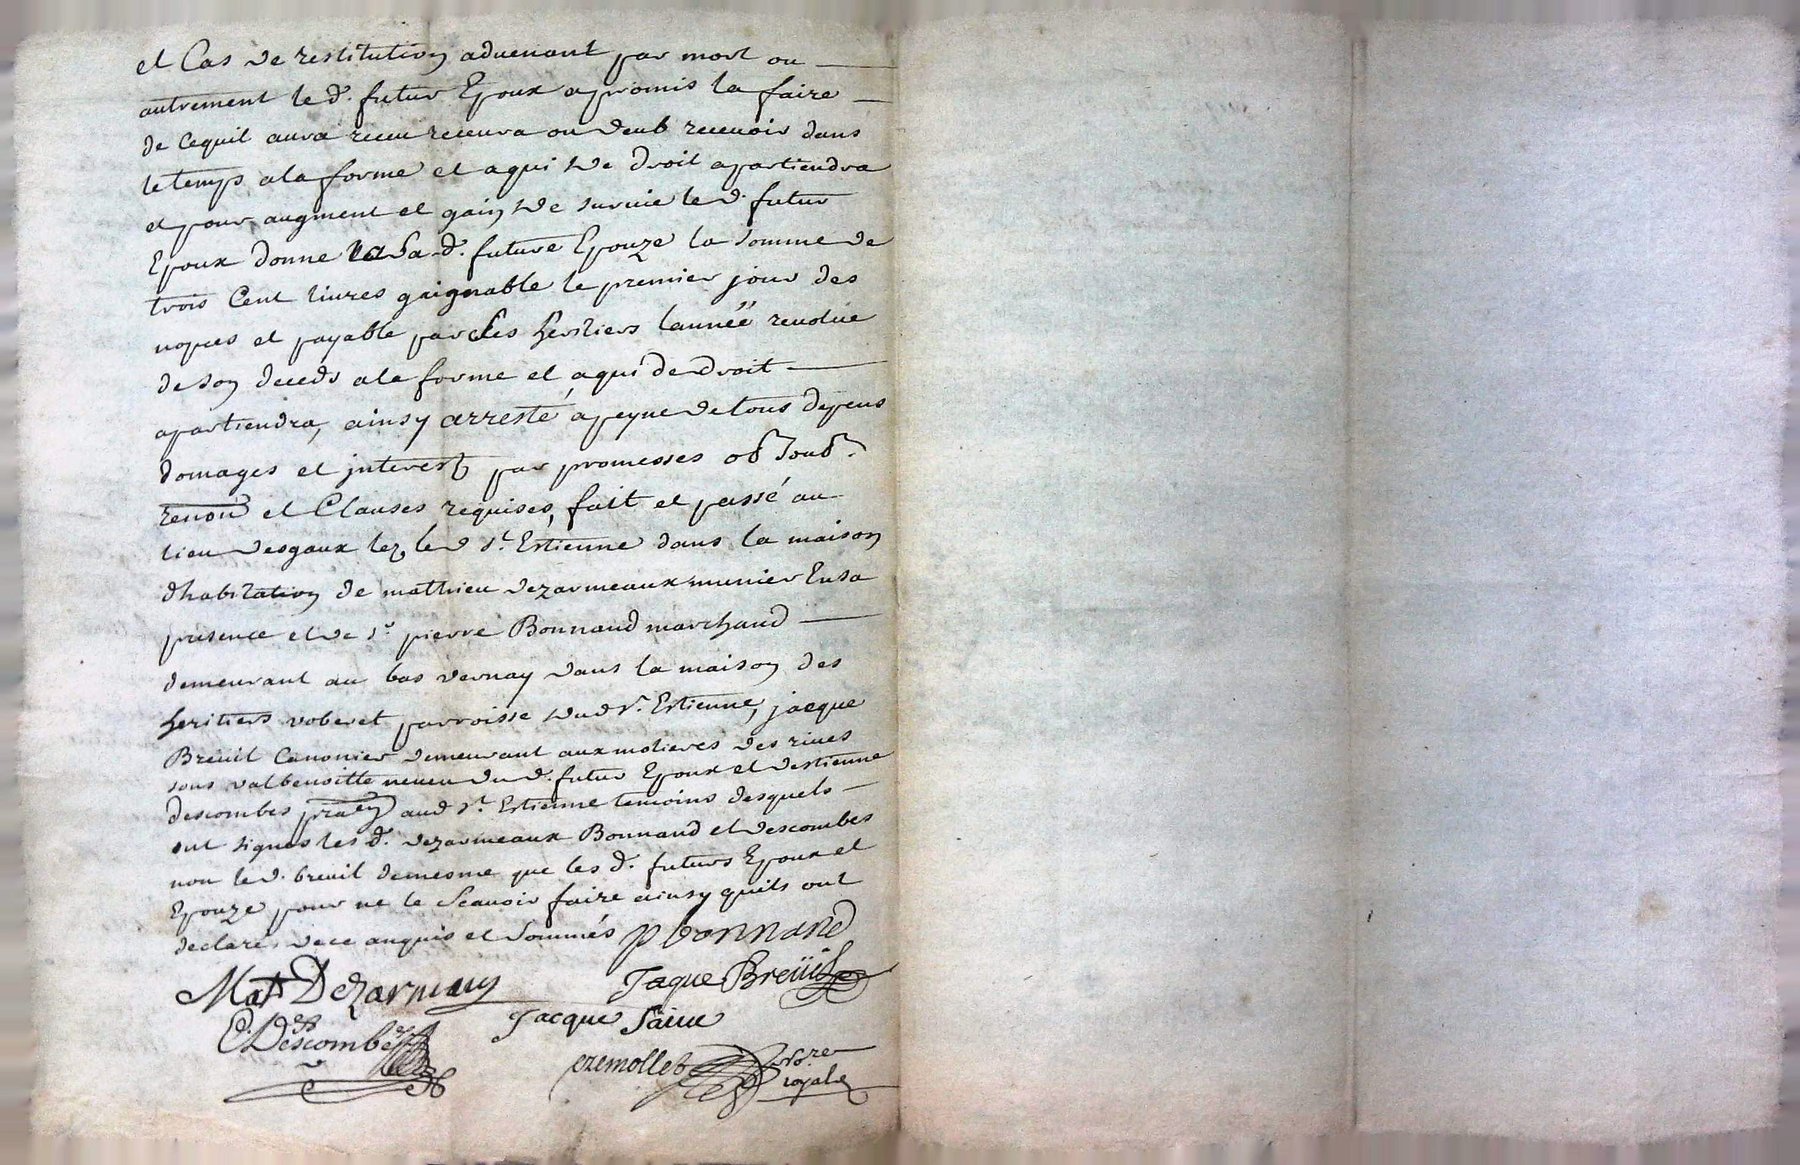 et Cas de restitution advenant par mort ou
autrement le d. futur Epoux a promis la faire
de cequil aura receu recevra ou deub recevoir dans
le temps ala forme et aqui de droit apartiendra
et pour augment et gain de survie le d. futur
Epoux donne a la d. future Epouze la somme de
trois Cent livres gaignable le premier jour des
nopces et payable par les heritiers lannéé revolüe
de son deceds ala forme et aqui de droit
apartiendra, ainsy arresté apeyne de tous depens
domages et interest par promesses ob soub.
renon et Clauses requises, fait et passé au
lieu desgaux lez led St. Estienne dans la maison
dhabitation de mathieu dezarmeaux munier Ensa
presence et de Sr. pierre Bonnand marchand
demeurant au bas vernay dans la maison des
heritiers voberet parroisse dud St. Estienne, jacque
Breuil Canonier demeurant aux molieres des rives
sous valbenoitte neveu du d. futur Epoux et destienne
descombes praen aud St. Estienne temoins desquels
ont signés les d. dezarmeaux Bonnand et descombes
non le d. breuil demesme que les d. futurs Epoux et
Epouze pour ne le Scavoir faire ainsy quils ont
declarés dece anquis et sommés p bonnand
Mat Dezarmaux Jaque Breüil
E. Descombes Jacque
ezemollet nore
royal